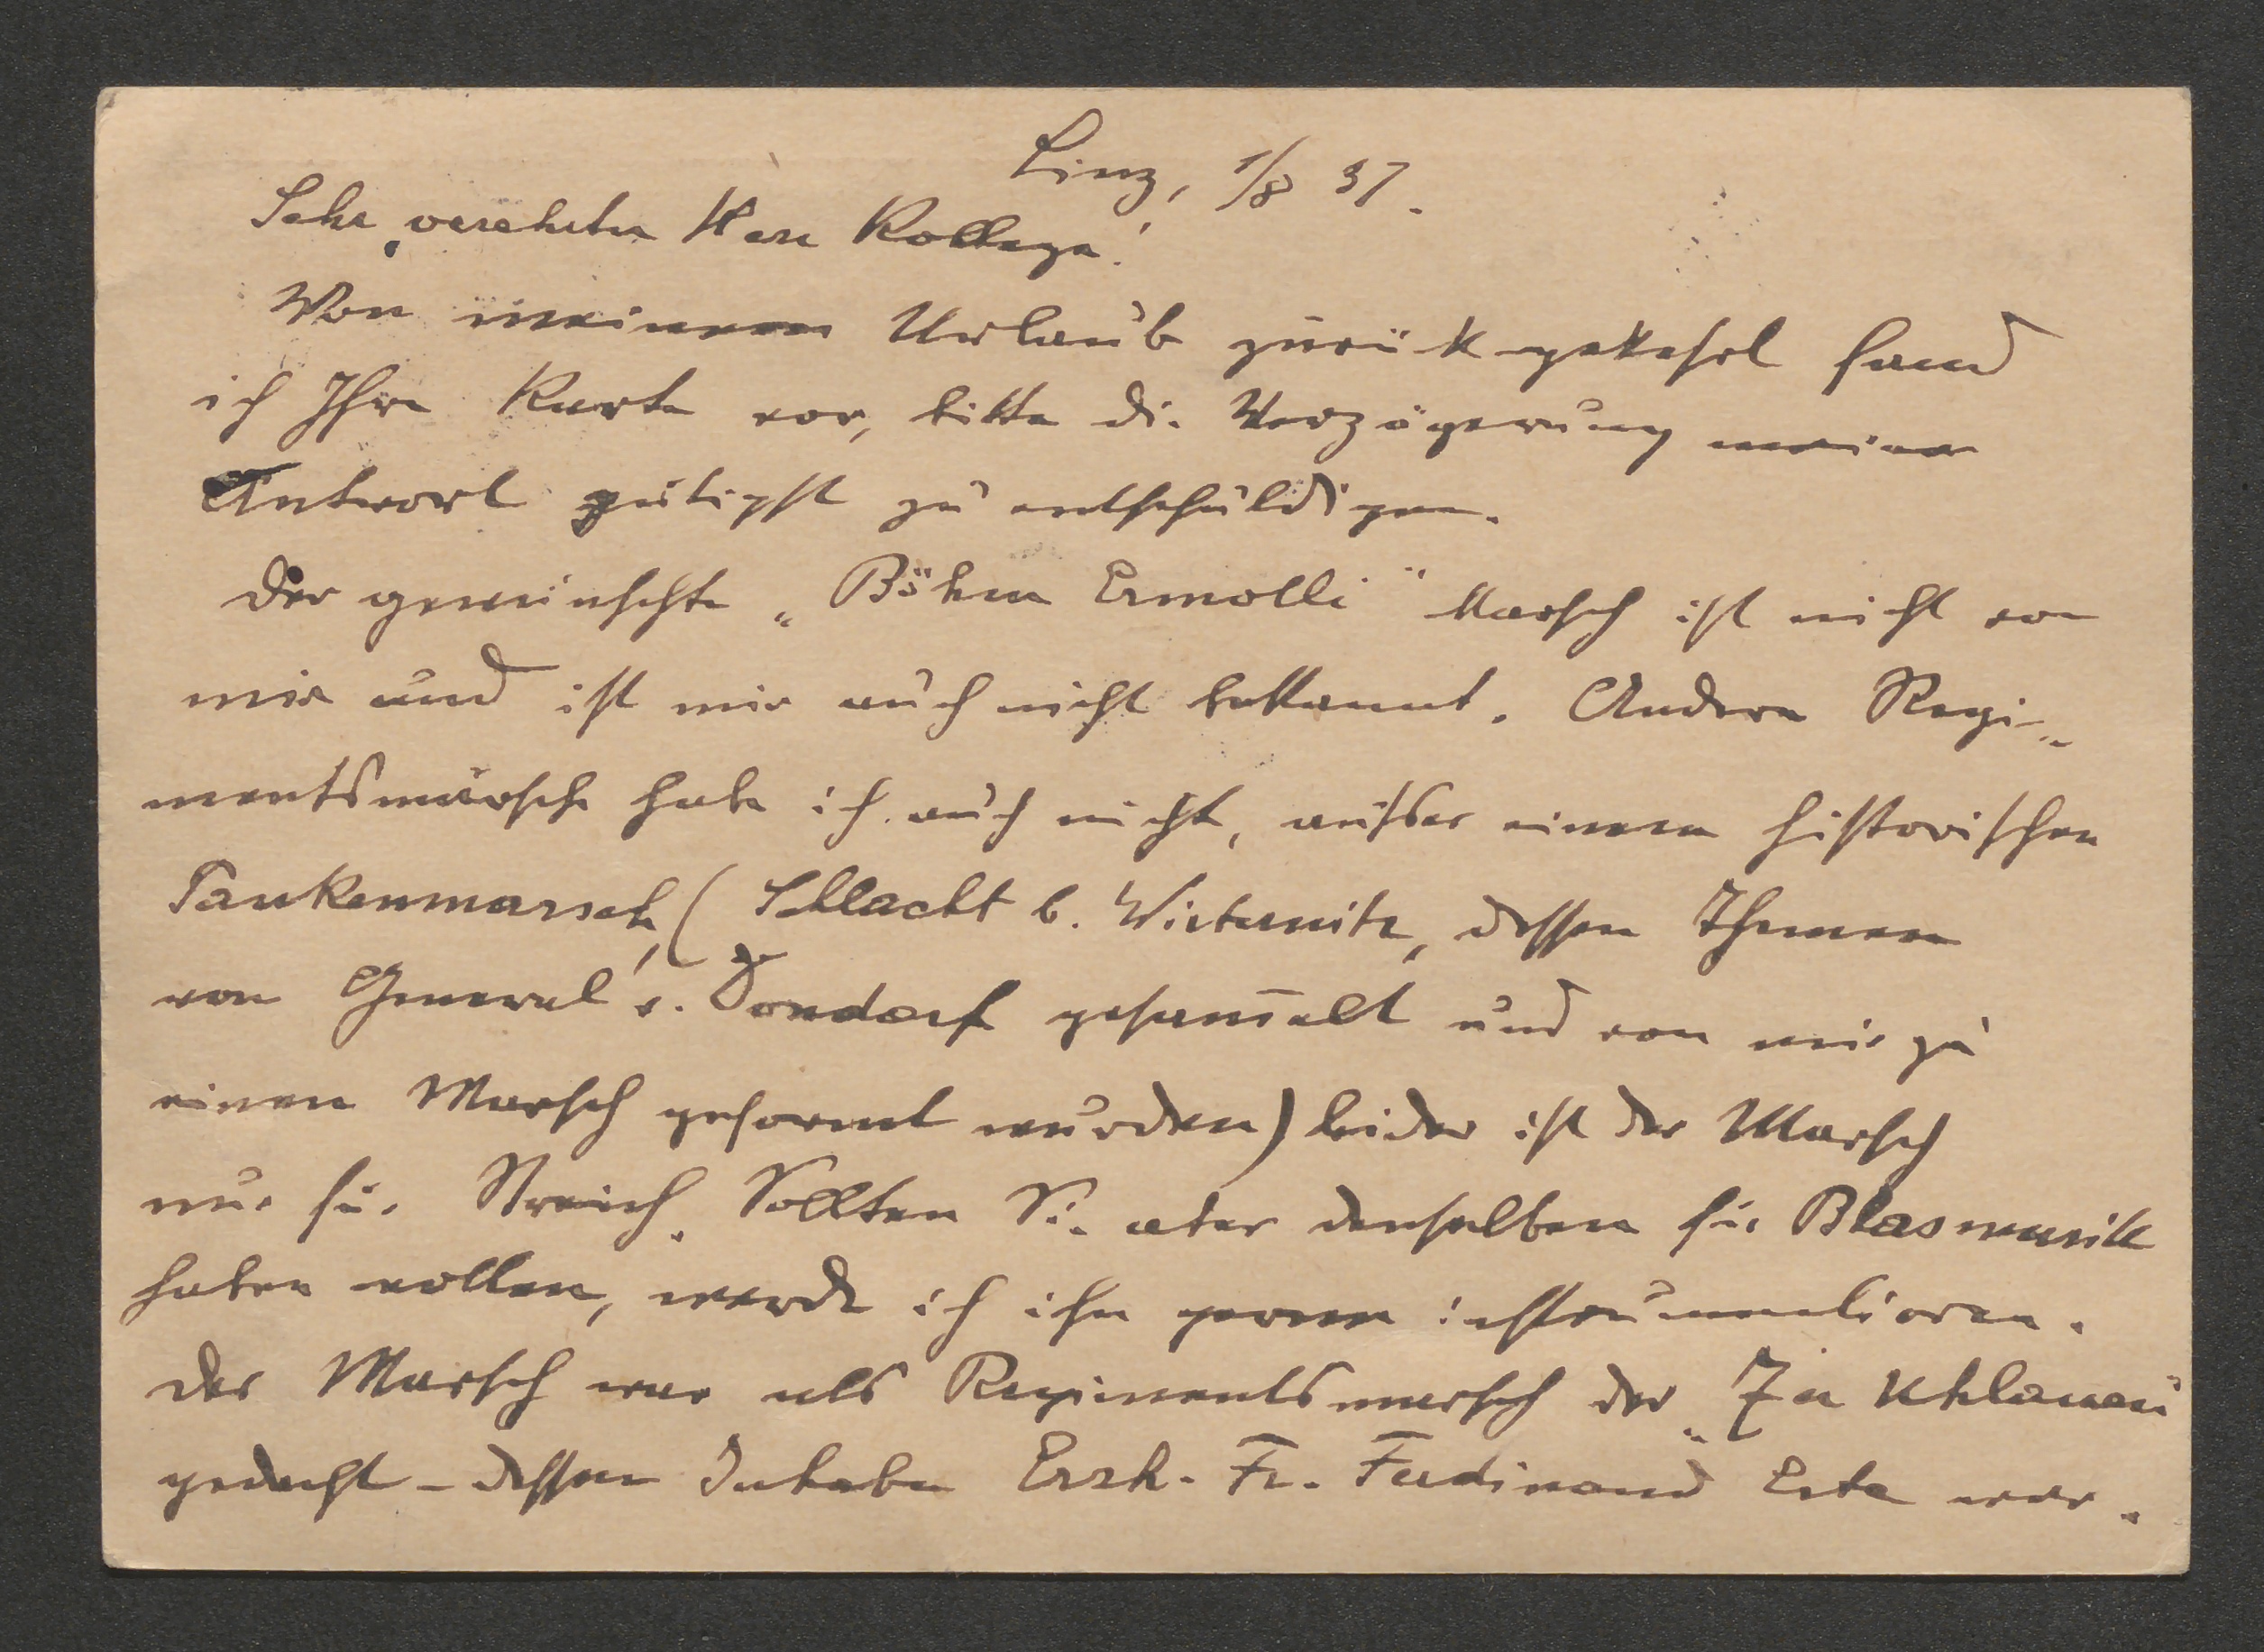 Linz, 1/8 37.
Sehr verehrter Herr Kollege!
Von meinem Urlaub zurükgekehrt fand
ich Ihre Karte vor, bitte die Verzögerung meiner
Antwort gütigst zu entschuldigen.
Der gewünschte „Böhm Ermolli" Marsch ist nicht von
mir und ist mir auch nicht bekannt. Andere Regi-
mentsmärsche habe ich auch nicht, außer einem historischen
Paukenmarsch, (Schlacht b. Wisternitz, dessen Themen
von General v. gesam̅elt und von mir zu
einen Marsch geformt wurden) leider ist der Marsch
nur für Streich. Sollten Sie aber denselben für Blasmusik
haben wollen, werde ich ihn gerne instrumentieren.
Der Marsch war als Regimentsmarsch der „7er Uhlanen"
gedacht - dessen Inhaber Erzh. Fr. Ferdinand Este war.